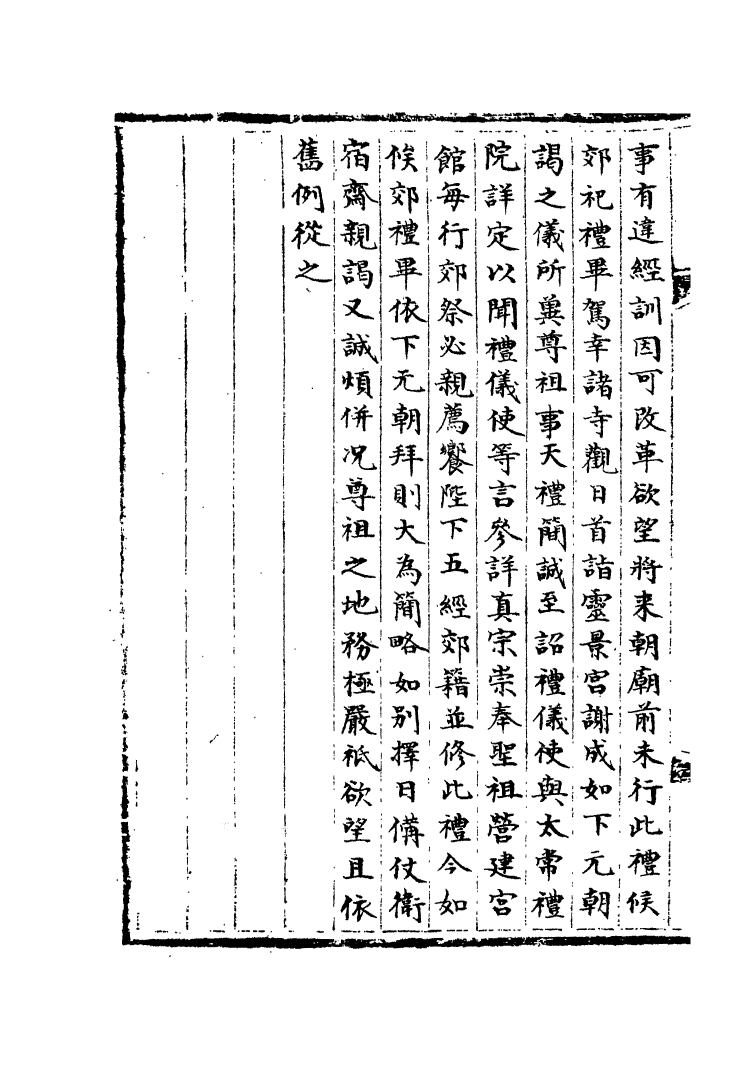 事有違經訓因可改革欲望將来朝廟前未行此禮候
郊祀禮畢駕幸諸寺觀日首詣靈景宮謝成如下元朝
謁之儀所冀尊祖事天禮簡誠至詔禮儀使與太常禮
院詳定以聞禮儀使等言參詳真宗崇奉聖祖營建宮
館每行郊祭必親薦饗陛下五經郊籍並修此禮今如
俟郊禮畢依下元朝拜則大為簡略如別擇日備仗衛
宿齋親謁又誠煩併况尊祖之地務極嚴祇欲望且依
舊例從之